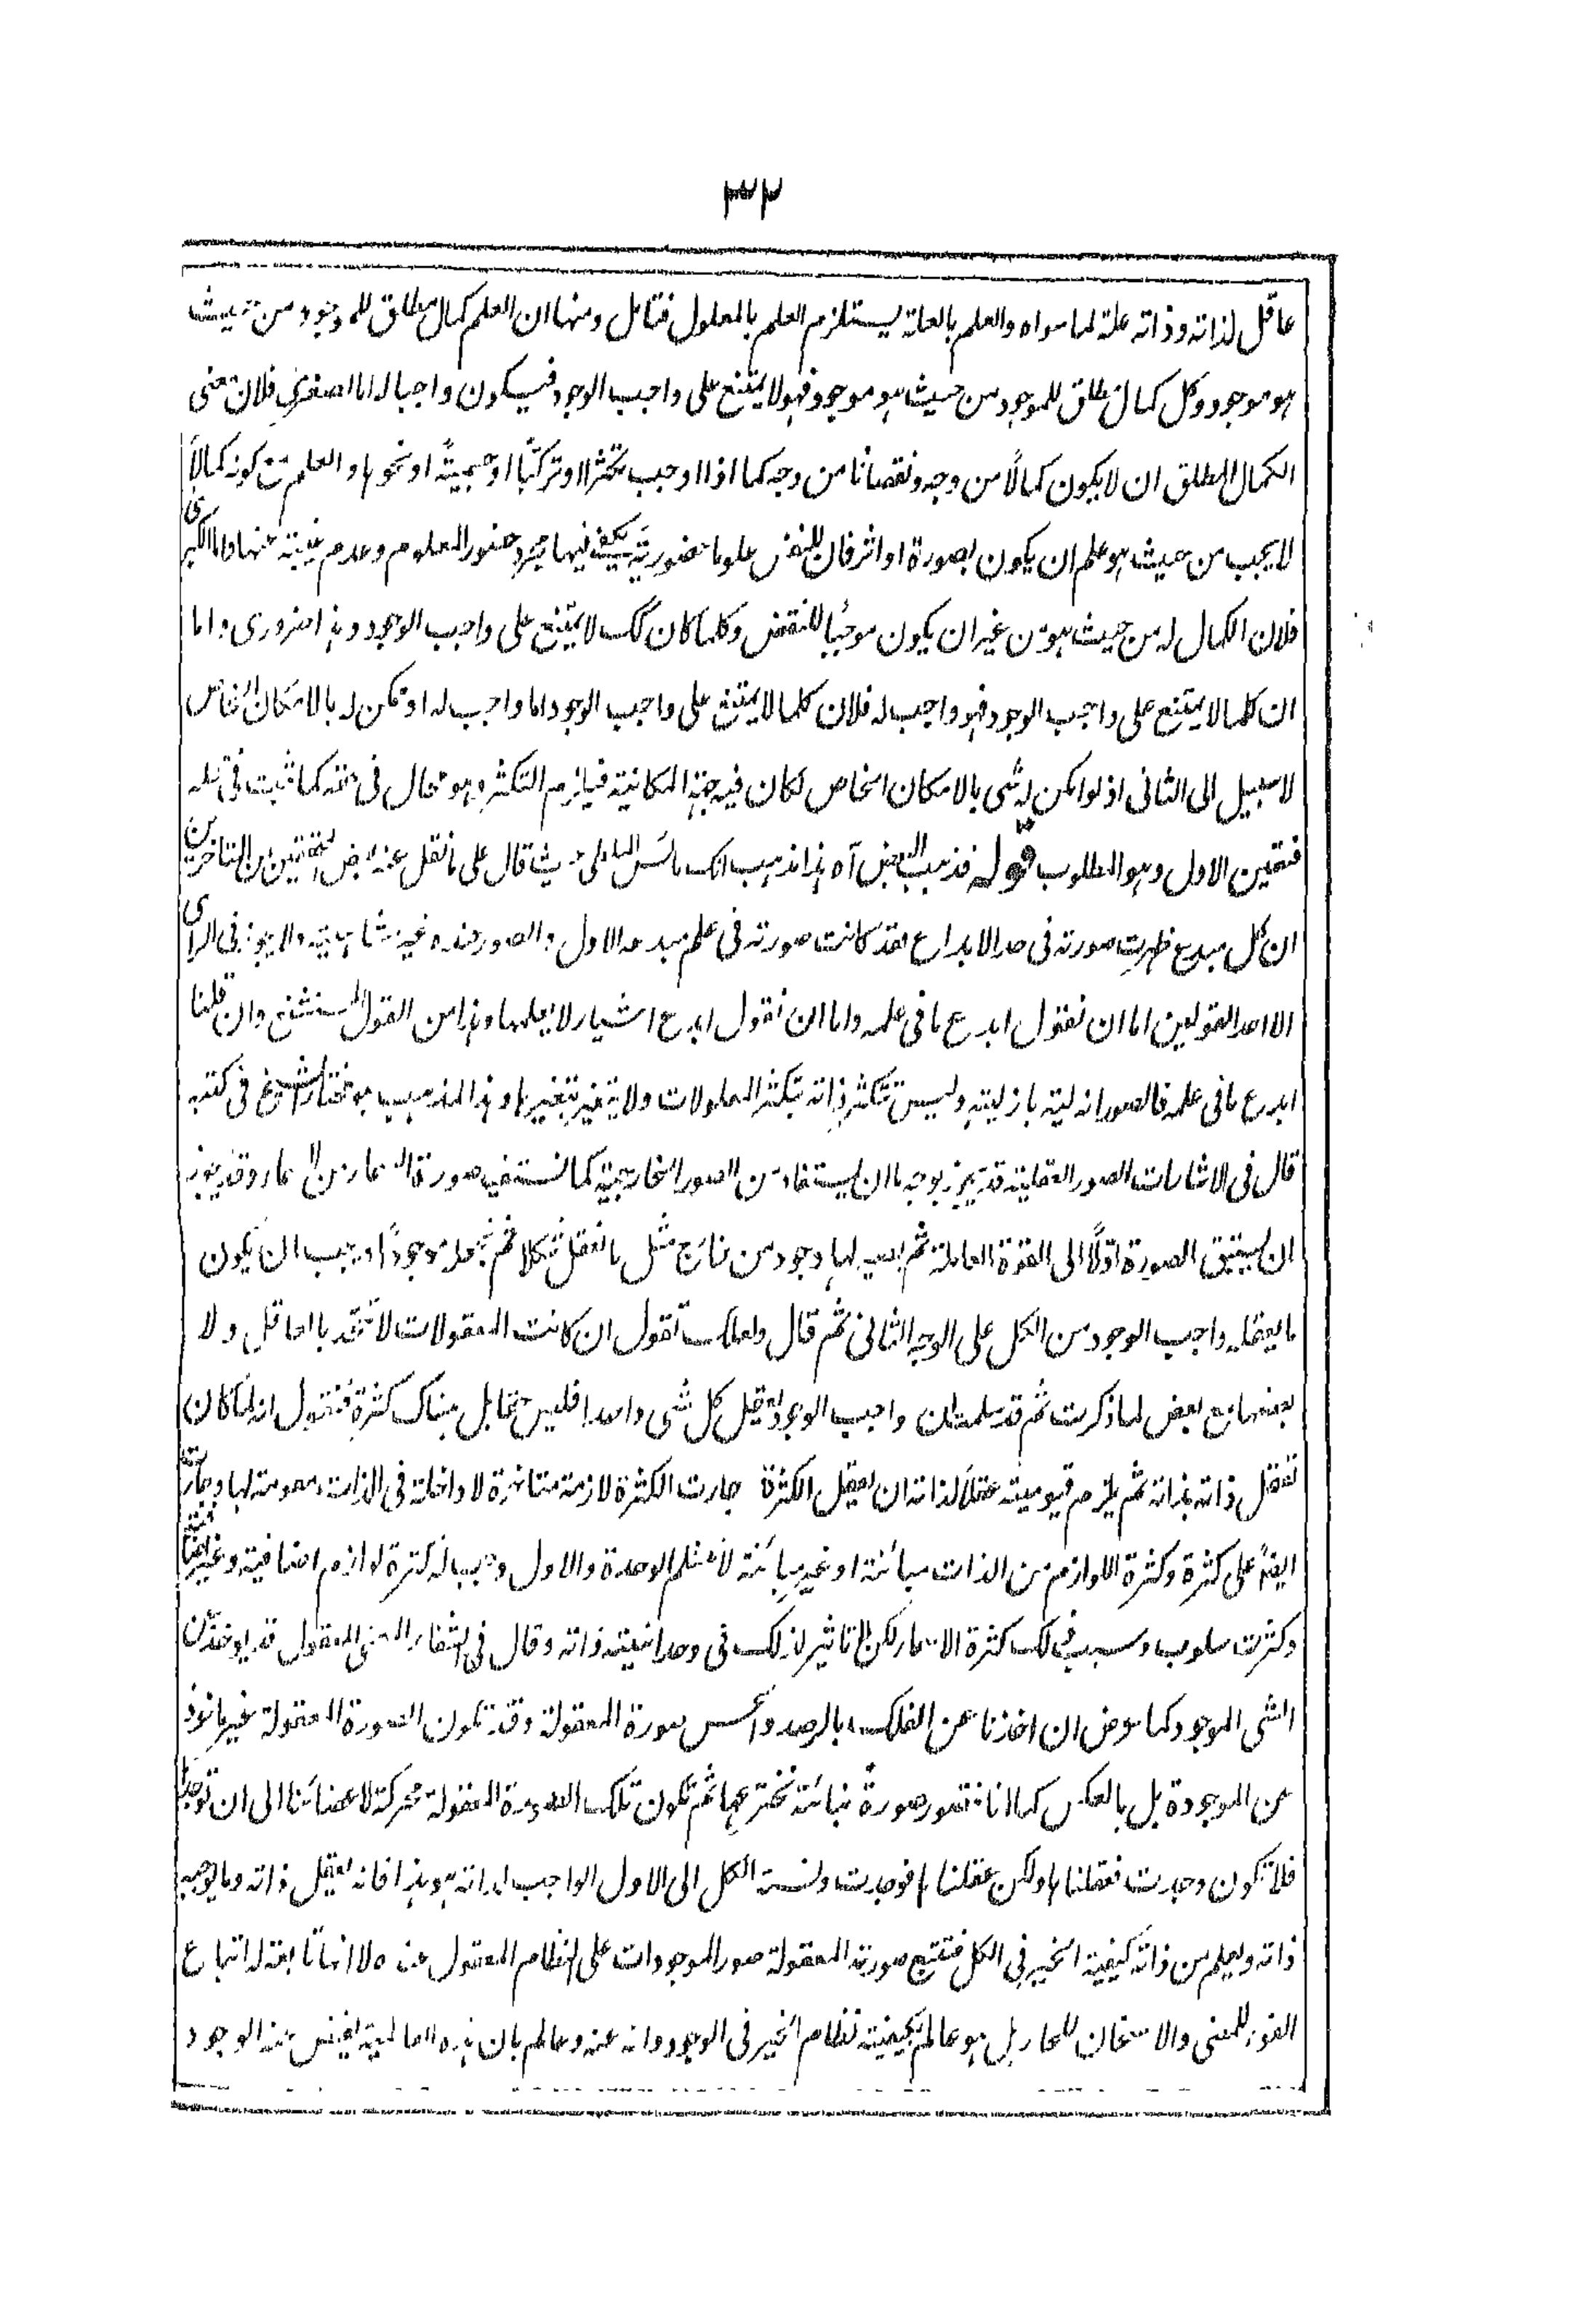 ٣٢
عاقل لذاته وذاته علة لما سواه والعلم بالعلة يستلزم العلم بالمعلول فتامل ومنها ان العلم كمال مطلق للموجود من حيث
هو موجود وكل كمال مطلق للموجود من حيث هو موجود فهو لا يمتنع على واجب الوجود فيكون واجبا له اما الصغرى فلان معنى
الكمال المطلق ان لا يكون كمالاً من وجه ونقصانا من وجه كما اذا اوجب تكثرا او تركبًا او جسميةً او نحوها والعلم من كونه كمالاً
لا يجب من حيث هو علم ان يكون بصورة او اثر فان للنفس علوما حضورية يكفي فيها مجرد حضور المعلوم وعدم غيبته عنها واما الكبرى
فلان الكمال له من حيث هو من غير ان يكون موجبًا للنقص وكلما كان كك لا يمتنع على واجب الوجود وهذا ضرورى واما
ان كلما لا يمتنع على واجب الوجود فهو واجب له فلان كلما لا يمتنع على واجب الوجود اما واجب له او ممكن له بالامكان الخاص
لا سبيل الى الثانى اذ لو امكن له شى بالامكان الخاص لكان فيه جهة امكانية فيلزم التكثر وهو محال فى حقه كما ثبت فى محله
فتعين الاول وهو المطلوب قوله فذهب البعض آه هذا مذهب انكسمائس الملطى حيث قال على ما نقل عنه بعض المحققين من المتاخرين
ان كل مبدع ظهرت صورته فى حد الابداع فقد كانت صورته فى علم مبدعه الاول والصور عنده غير متناهية ولا يجوز فى الراى
الا احد القولين اما ان نقول ابدع ما فى علمه واما ان نقول ابدع اشياء لا يعلمها وهذا من القول المستشنع وان قلنا
ابدع ما فى علمه فالصور ازلية بازليته وليس تتكثر ذاته بتكثر المعلولات ولا يتغير بتغيرها وهذا المذهب هو مختار الشيخ فى كتبه
قال فى الاشارات الصور العقلية قد يجوز بوجه ما ان يستفاد من الصور الخارجية كما نستفيد صورة السماء من السماء وقد يجوز
ان يسبق الصورة اولاً الى القوة العاقلة ثم يصير لها وجود من خارج مثل ما نعقل شكلا ثم نجعله موجودًا ويجب ان يكون
ما يعقله واجب الوجود من الكل على الوجه الثانى ثم قال ولعلك تقول ان كانت المعقولات لا تتحد بالعاقل ولا
بعضها مع بعض لما ذكرت ثم قد سلمت ان واجب الوجود يعقل كل شى واحدا فليس حقا بل هناك كثرة فنقول انه لما كان
تعقل ذاته بذاته ثم يلزم قيوميته عقلاً لذاته ان يعقل الكثرة جاءت الكثرة لازمة متاخرة لا داخلة فى الذات مقومة لها وجاءت
ايضًا على ترتيب وكثرة اللوازم من الذات مباينة او غير مباينة لا تثلم الوحدة والاول يعرض له كثرة لوازم اضافية وغير اضافية
وكثرت سلوب وبسبب ذلك كثرة الاسماء لكن لا تاثير لذلك فى وحدانية ذاته وقال فى الشفاء المعنى المعقول قد يوخذ من
الشى الموجود كما عرض ان اخذنا عن الفلك بالرصد والحس صورة المعقولة وقد تكون الصورة المعقولة غير ماخوذة
عن الموجودة بل بالعكس كما انا نتصور صورة بنائية نخترعها ثم تكون تلك الصورة المعقولة محركة لاعضائنا الى ان توجدها
فلا تكون وجدت فعقلناها ولكن عقلناها فوجدت ونسبة الكل الى الاول الواجب لذاته هو هذا فانه يعقل ذاته وما يوجبه
ذاته ويعلم من ذاته كيفية الخير فى الكل فتتبع صورته المعقولة صور الموجودات على النظام المعقول عنده لا انها تابعة له اتباع
الضوء للمضى والاسخان للحار بل هو عالم بكيفية نظام الخير فى الوجود وانه عنه وعالم بان هذه العالمية يفيض عنه الوجود